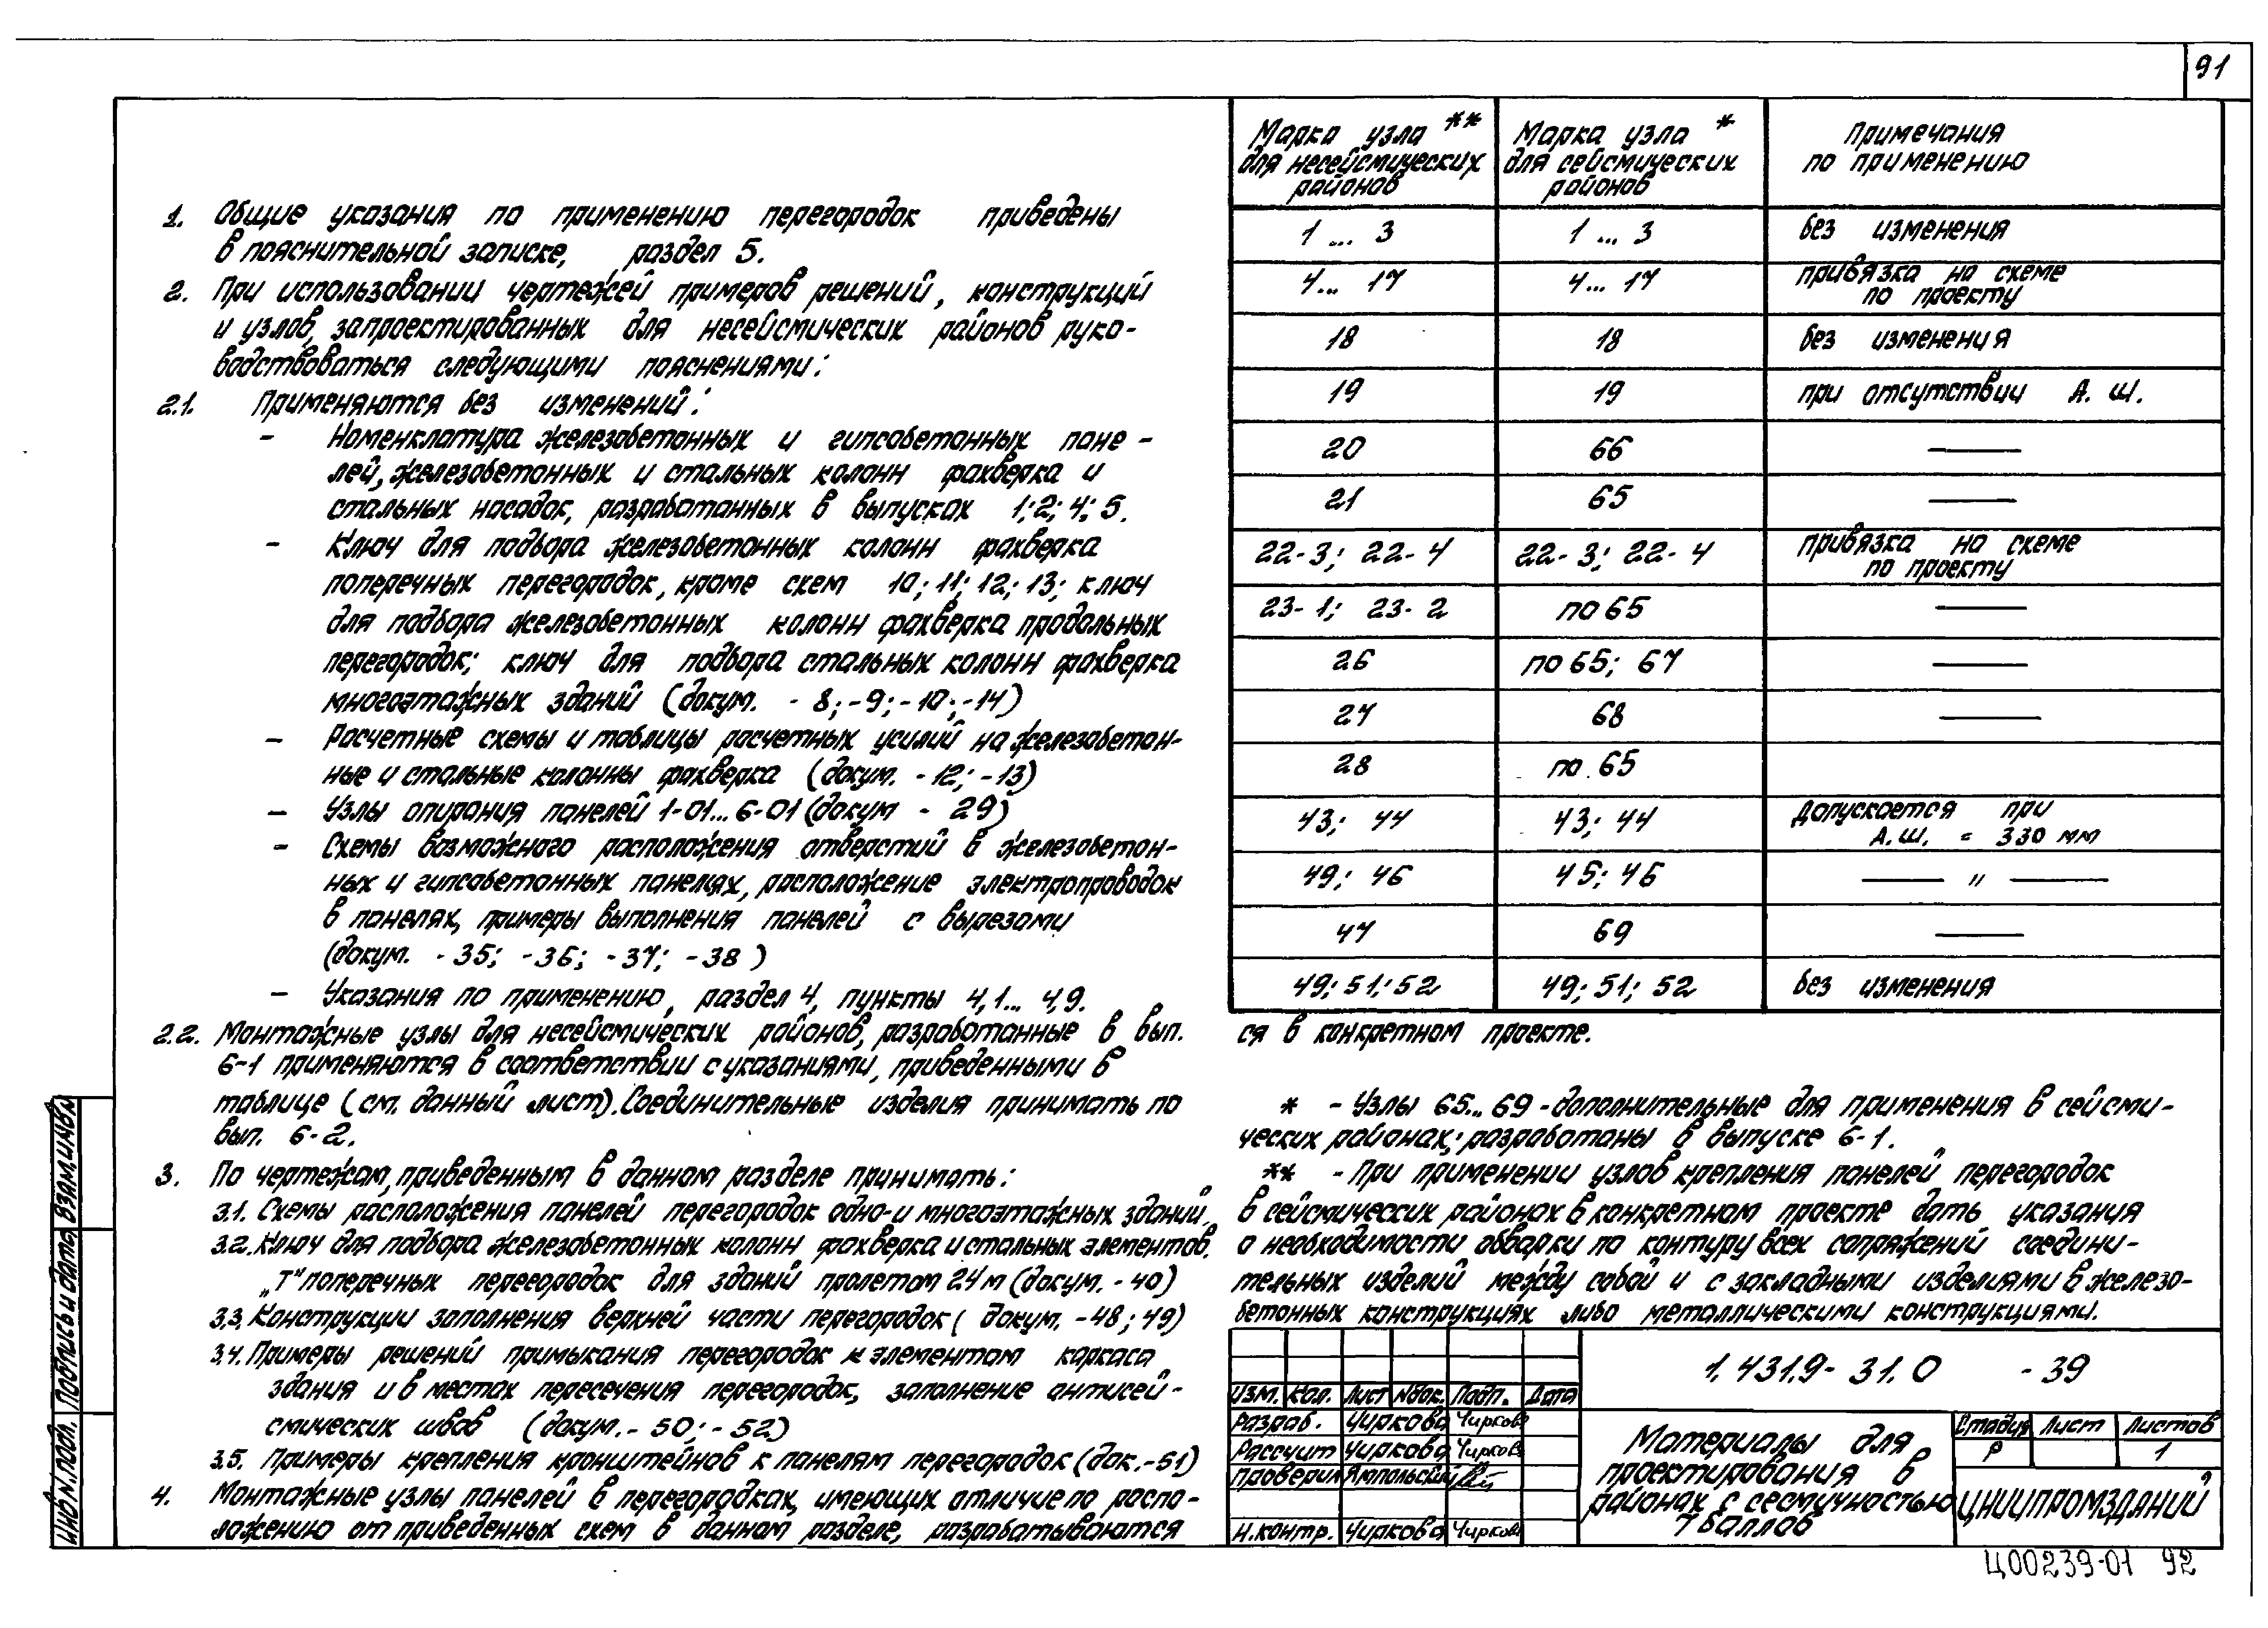 91
1. Общие указания по применению перегородок приведены
в пояснительной записке, раздел 5.
2. При использовании чертежей примеров решений, конструкций
и узлов, запроектированных для несейсмических районов руко-
водствоваться следующими пояснениями:
2.1. Применяются без изменений:
- Номенклатура железобетонных и гипсобетонных пане-
лей, железобетонных и стальных колонн фахверка и
стальных насадок, разработанных в выпусках 1; 2; 4; 5.
- Ключ для подбора железобетонных колонн фахверка
поперечных перегородок, кроме схем 10; 11; 12; 13; ключ
для подбора железобетонных колонн фахверка продольных
перегородок; ключ для подбора стальных колонн фахверка
многоэтажных зданий (докум. - 8; -9; -10; -14)
- Расчетные схемы и таблицы расчетных усилий на железобетон-
ные и стальные колонны фахверка (докум. -12; -13)
- Узлы опирания панелей 1-01...6-01 (докум - 29)
- Схемы возможного расположения отверстий в железобетон-
ных и гипсобетонных панелях, расположение электропроводок
в панелях, примеры выполнения панелей с вырезами
(докум. -35; -36; -37; -38)
- Указания по применению, раздел 4, пункты 4,1... 4,9.
2.2. Монтажные узлы для несейсмических районов, разработанные в вып.
6-1 применяются в соответствии с указаниями, приведенными в
таблице (см. данный лист). Соединительные изделия принимать по
вып. 6-2.
3. По чертежам, приведенным в данном разделе принимать:
3.1. Схемы расположения панелей перегородок одно- и многоэтажных зданий,
3.2. Ключ для подбора железобетонных колонн фахверка и стальных элементов,
„Т" поперечных перегородок для зданий пролетом 24 м (докум. -40)
3.3. Конструкции заполнения верхней части перегородок ( докум. -48; 49)
3.4. Примеры решений примыкания перегородок к элементам каркаса
здания и в местах пересечения перегородок, заполнение антисей-
смических швов (докум. - 50; - 52)
3.5. Примеры крепления кронштейнов к панелям перегородок (док.-51)
4. Монтажные узлы панелей в перегородках, имеющих отличие по распо-
ложению от приведенных схем в данном разделе, разрабатываются
Марка узла ** для несейсмических районов | Марка узла * для сейсмических районов | Примечания по применению
1 ... 3 | 1 ... 3 | без изменения
4... 17 | 4... 17 | привязка на схеме по проекту
18 | 18 | без изменения
19 | 19 | при отсутствии А. Ш.
20 | 66 | —
21 | 65 | —
22-3; 22-4 | 22-3; 22-4 | привязка на схеме по проекту
23-1; 23-2 | по 65 | —
26 | по 65; 67 | —
27 | 68 | —
28 | по 65
43; 44 | 43; 44 | допускается при А.Ш. = 330 мм
49; 46 | 45; 46 | — " —
47 | 69 | —
49; 51; 52 | 49; 51; 52 | без изменения
ся в конкретном проекте.
* - Узлы 65...69 - дополнительные для применения в сейсми-
ческих районах; разработаны в выпуске 6-1.
** - При применении узлов крепления панелей перегородок
в сейсмических районах в конкретном проекте дать указания
о необходимости обварки по контуру всех сопряжений соедини-
тельных изделий между собой и с закладными изделиями в железо-
бетонных конструкциях либо металлическими конструкциями.
1.431.9-31.0 -39
Изм. Кол. Лист №док. Подп. Дата
Разраб. Чиркова Чирков
Рассчит Чиркова Чирков
Проверил Ямпольский
Н.контр. Чиркова Чирков
Материалы для
проектирования в
районах с сесмучностью
7 баллов
Стадия Лист Листов
Р 1
ЦНИИПРОМЗДАНИЙ
Инв N. подл. Подпись и дата Взам.инв.N
Ц00239-01 92